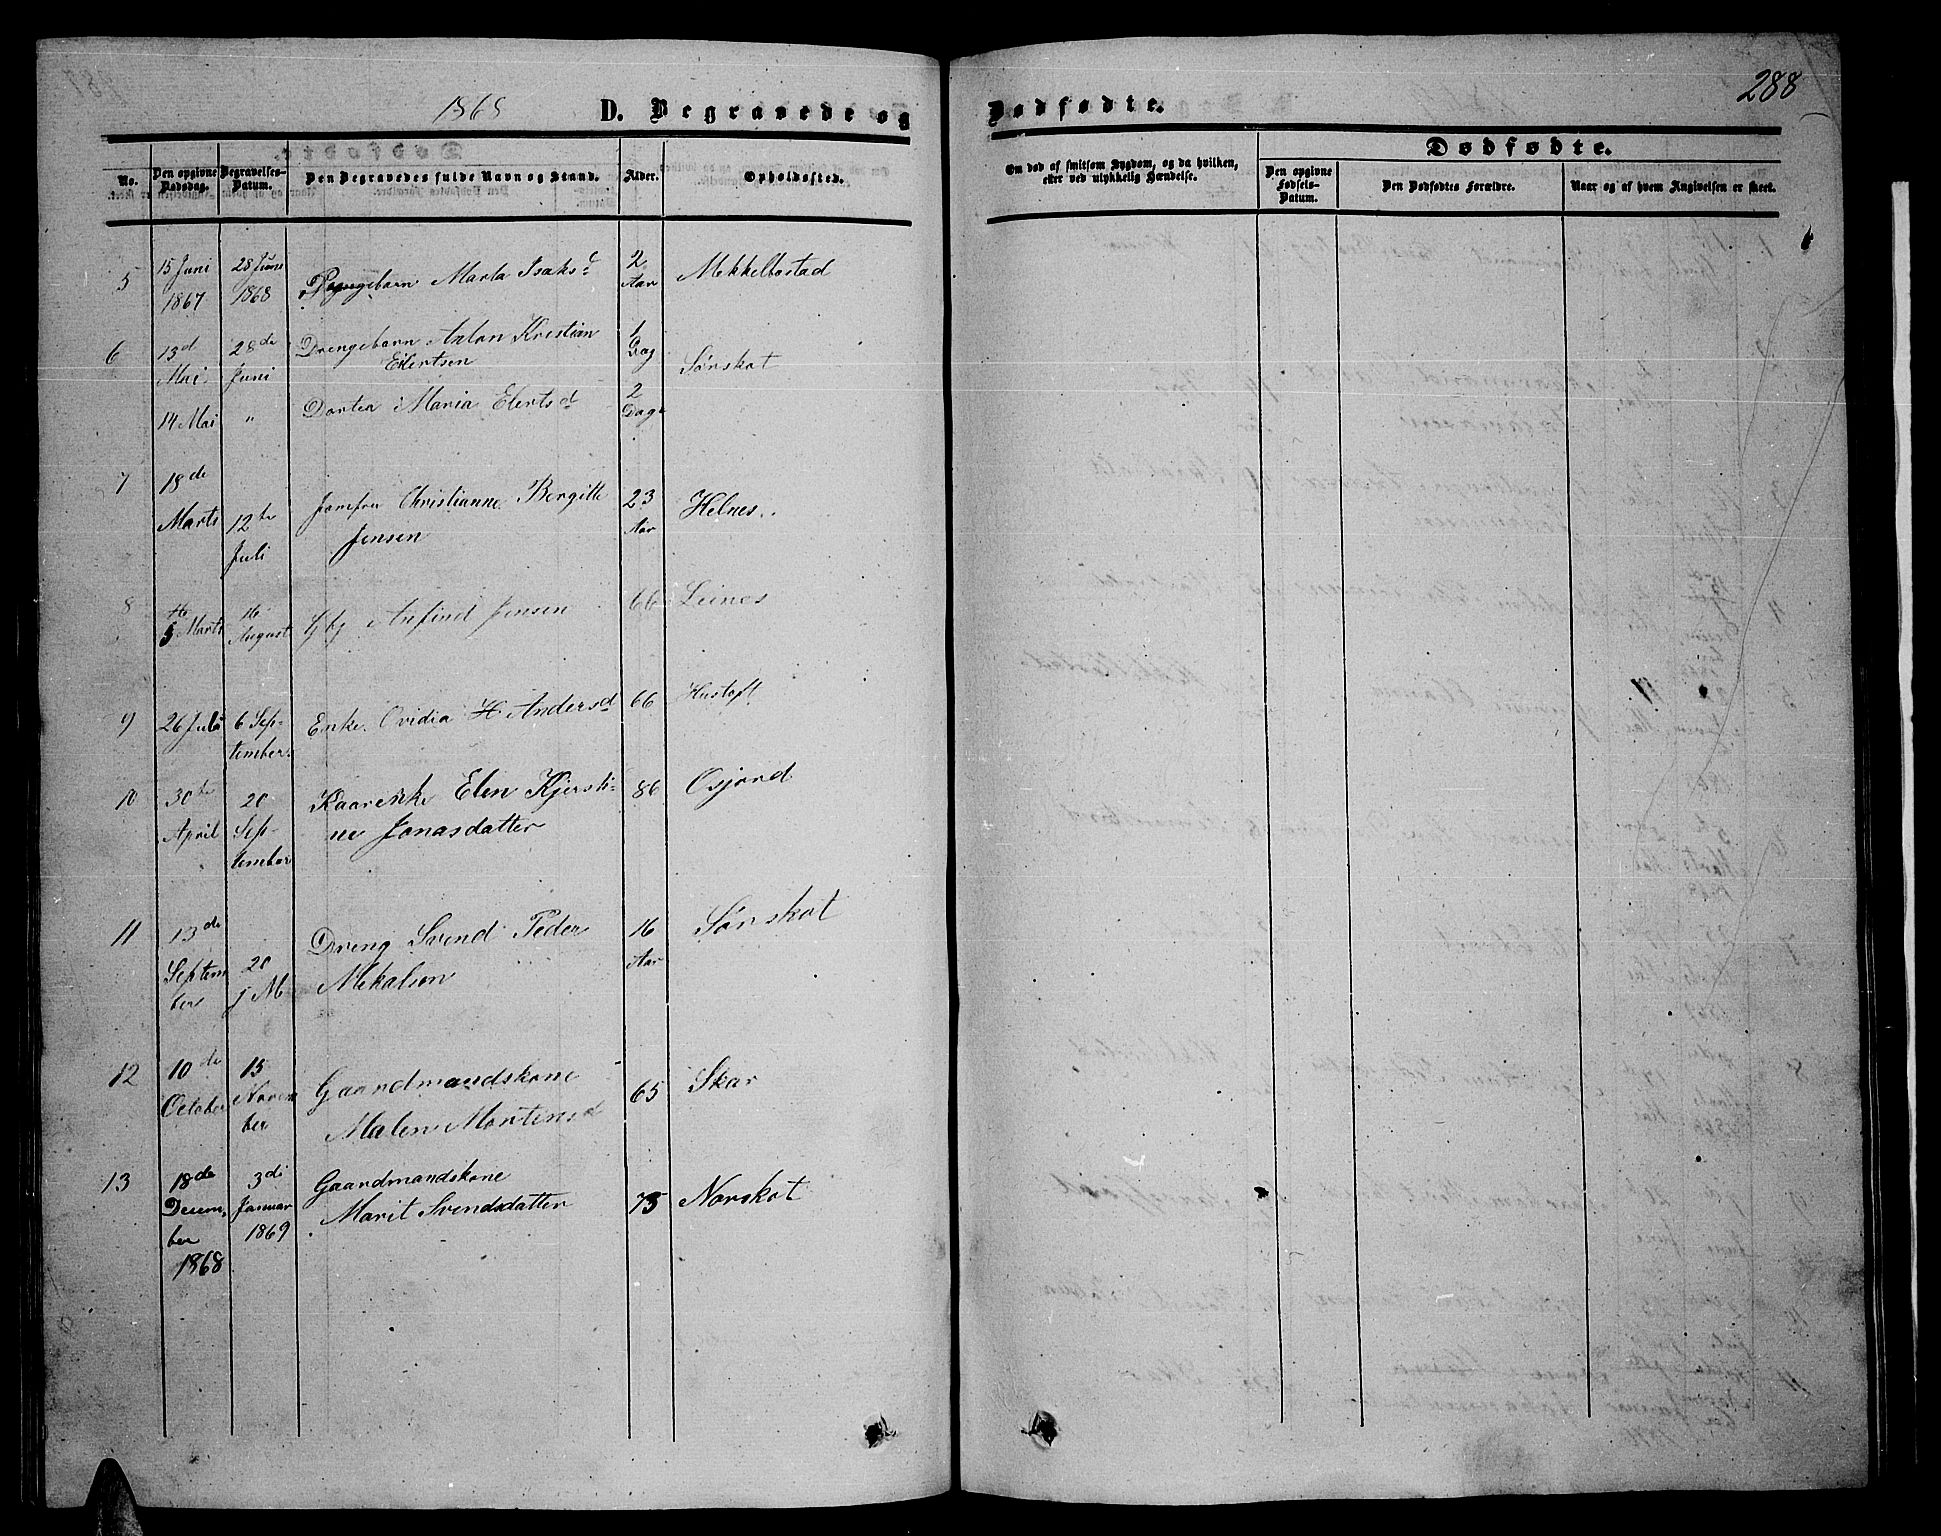 288
1868 D. Begravede og Dødfødte.
No. Den opgivne Dødsdag. Begravelses-Datum. Den Begravedes fulde Navn og Stand. Alder. Opholdssted.
Om død af smitsom Sygdom, og da hvilken, eller ved ulykkelig Hændelse.
Dødfødte.
Den opgivne Fødsels-Datum. Den Dødfødtes Forældre. Naar og af hvem Angivelsen er skeet.
5 15 Juni 28 Juni 2
1867 1868 Pigebarn Marta Isaksd Aar Mekkelbostad
6 13d 28de Drengebarn Anton Kristian 1
Mai Juni Elertsen Dag Sørskot
14 Mai " Dortea Maria Elertsd 2
Dage
7 18de
Marts 12te Jomfru Christianne Bergitte 23 Helnes.
Juli Jensen Aar
8 5te Marts 16 August Arfind Jensen 66 Leines
9 26 Juli 6 Sep- Enke Ovidia H Andersd 66 Hustoft
tember
10 30te 20 Kaarenke Elen Kjersti- 86 Osjord
April Sep- ne Jonasdatter
tember
11 13de Dreng Svend Peder 16 Sørskot
Septem 20 Mekalsen Aar
ber j M
12 10de 15 Gaardmandskone 65 Skar
October Novem Malen Mortensd
ber
13 18de 3di Gaardmandskone
Decem, Januar Marit Svendsdatter 75 Norskot
ber 1869
1868